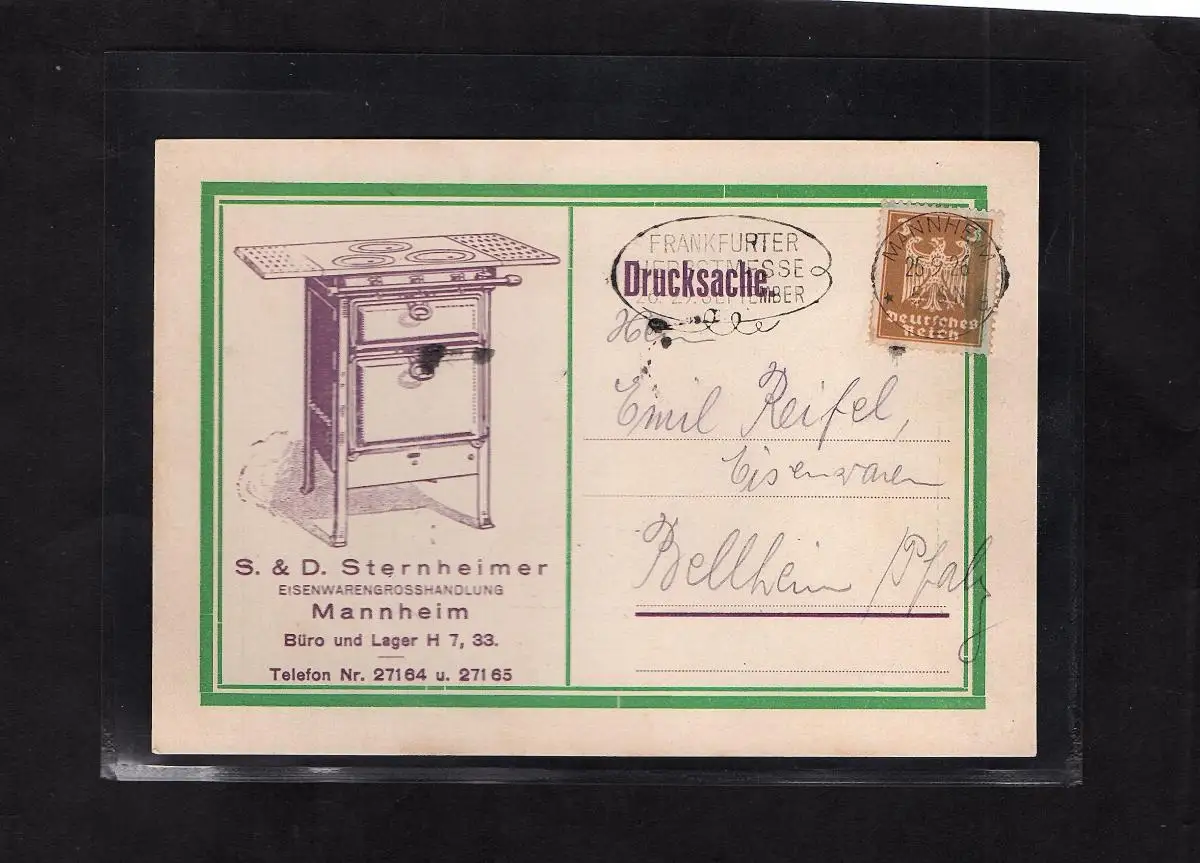 S. & D. Sternheimer
EISENWARENGROSSHANDLUNG
Mannheim
Büro und Lager H 7, 33.
Telefon Nr. 27164 u. 27165
FRANKFURTER
HERBSTMESSE
SEPTEMBER
Drucksache
MANNHEIM
3
Deutsches
Reich
Emil Reifel,
Eisenwaren
Bellheim /Pfalz